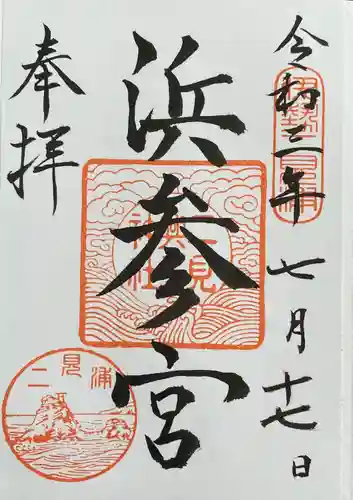 令和三年七月十七日
伊勢二見浦
浜参宮
二見興玉神社
奉拝
二見浦